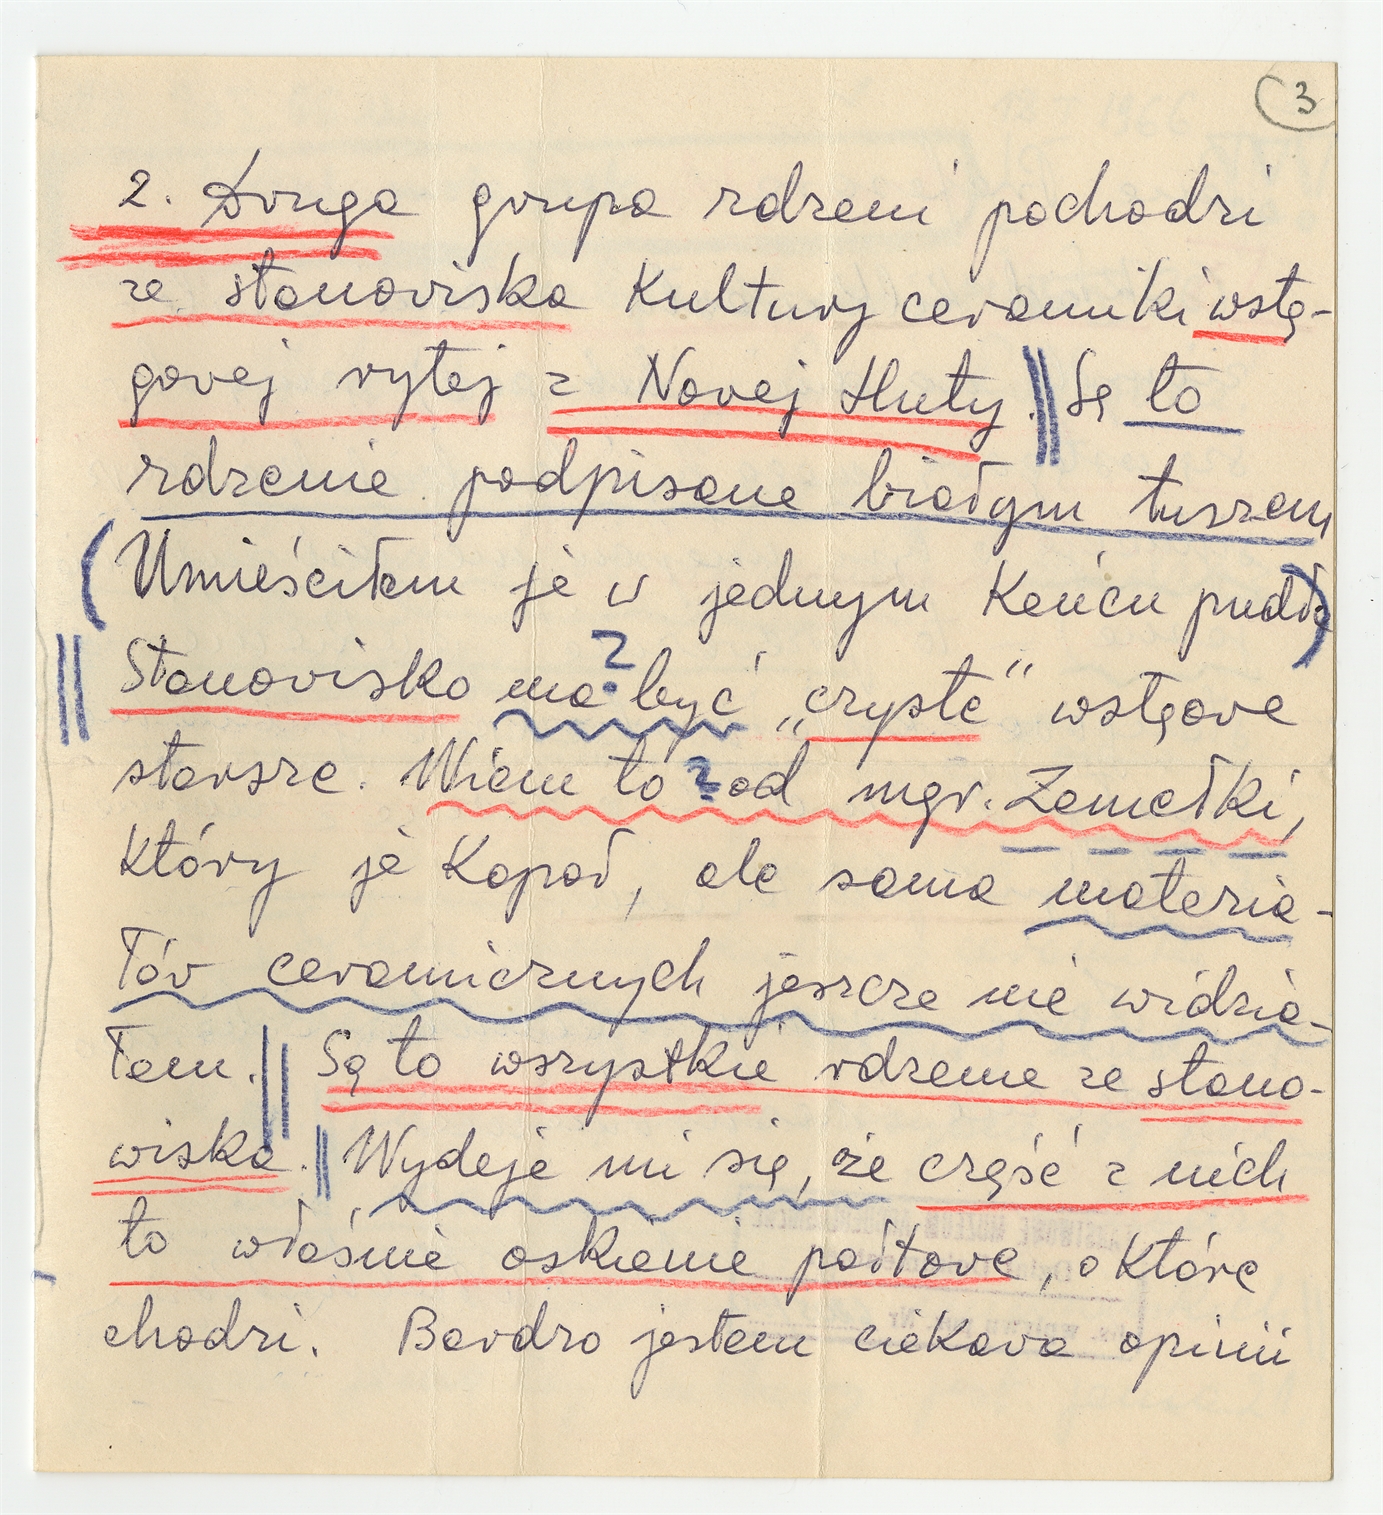 3
2. Druga grupa rdzeni pochodzi
ze stanowiska Kultury ceramiki wstę-
gowej rytej z Nowej Huty. Są to
rdzenie podpisane białym tuszem
(Umieściłem je w jednym Końcu pudła)
?
Stanowisko ma być „czyste" wstęgowe
starsze. Wiem to ? od mgr. Zemełki,
Który je Kopał, ale sama materia-
łów ceramicznych jeszcze nie widzia-
łam. Są to wszystkie rdzenie ze stano-
wiska. Wydaje mi się, że część z nich
to właśnie oskienie, o Które
chodzi. Bardzo jestem ciekawa opinii